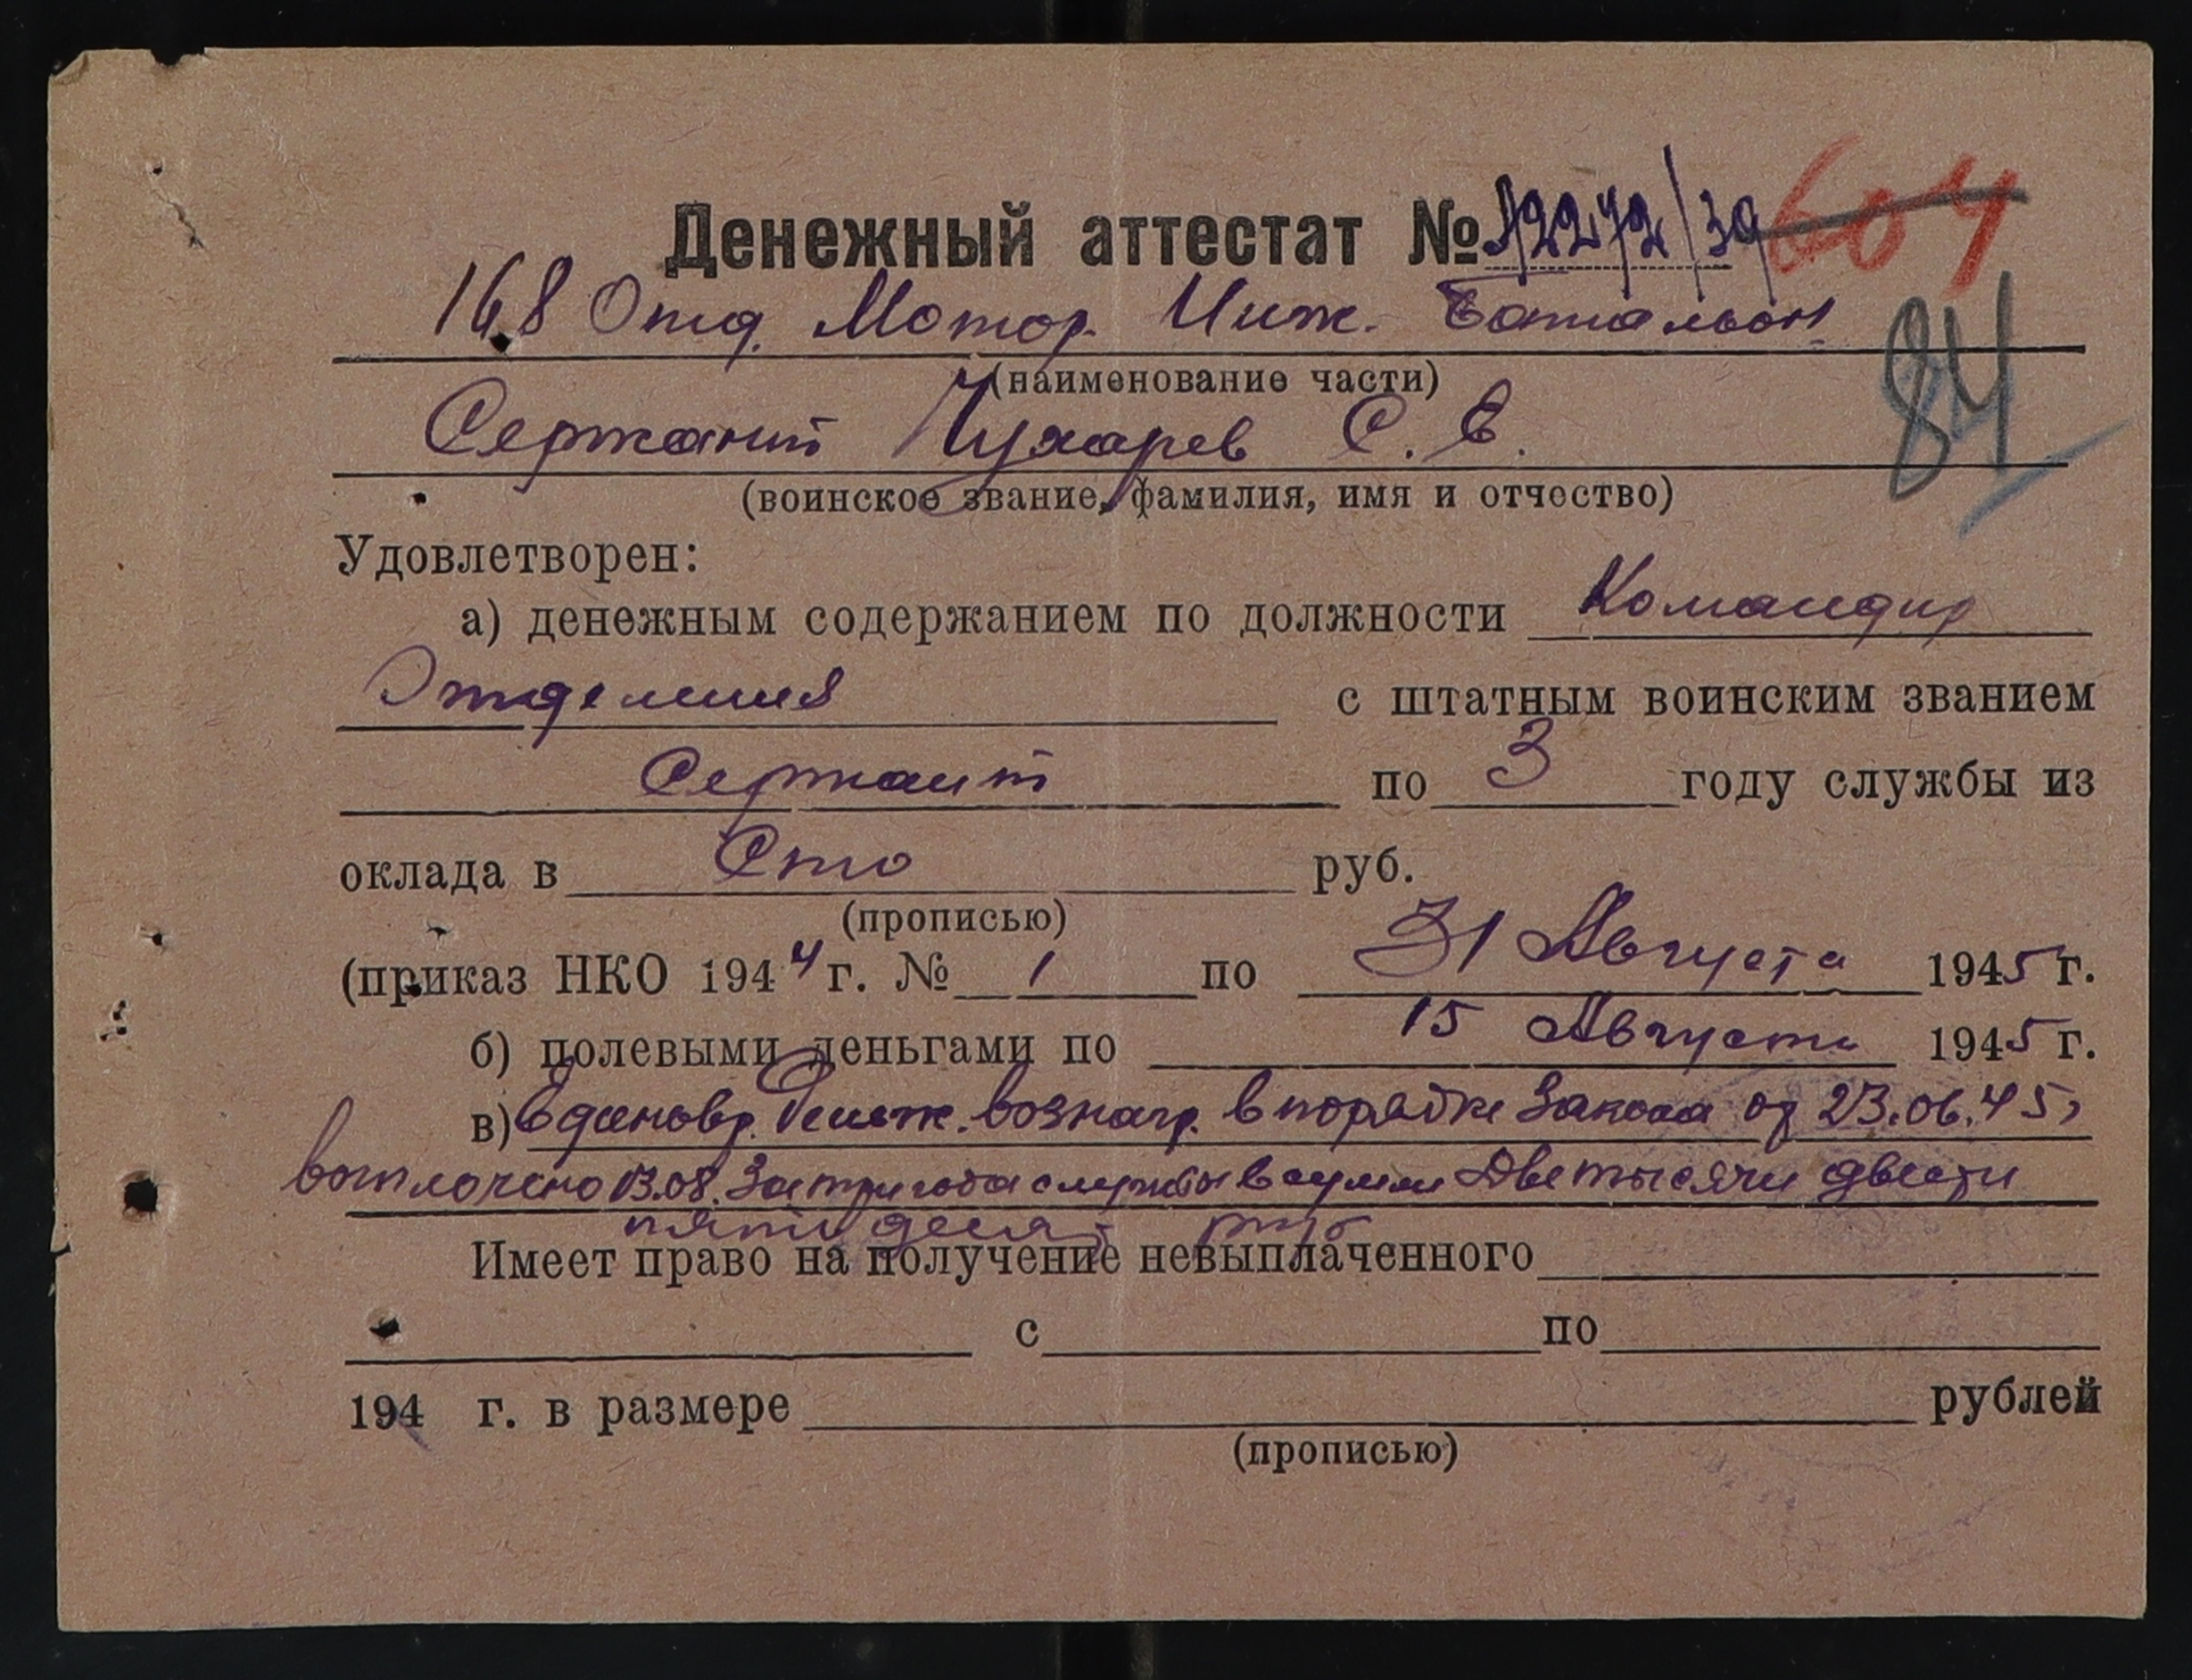 Денежный аттестат № 12272/39 604
168 Отд. Мотор. Инж. Батальон
84
(наименование части)
Сержант Чухарев С. Е.
(воинское звание, фамилия, имя и отчество)
Удовлетворен:
а) денежным содержанием по должности Командир
Отделения с штатным воинским званием
Сержант по 3 году службы из
оклада в Сто руб.
(прописью)
(приказ НКО 1944 г. № 1 по 31 Августа 1945 г.
б) полевыми деньгами по 15 Августа 1945 г.
в) Единовр. Денеж. вознагр. в порядке Закона от 23.06.45г
выплачено 13.08. За три года службы в сумме Две тысячи двести
пятьдесят руб
Имеет право на получение невыплаченного
с по
194 г. в размере рублей
(прописью)